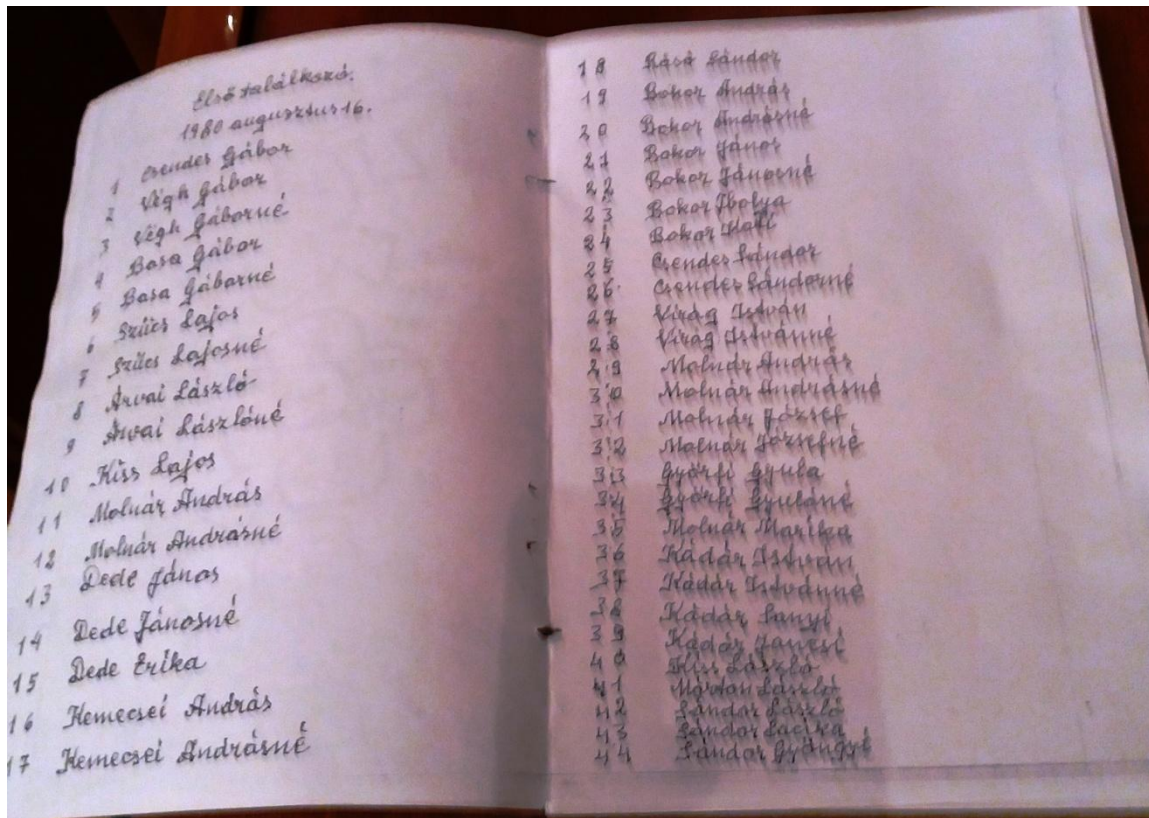 Első találkozó.
1980 augusztus 16.
1 Csendes Gábor
2 Végh Gábor
3 Végh Gáborné
4 Basa Gábor
5 Basa Gáborné
6 Szűcs Lajos
7 Szűcs Lajosné
8 Árvai László
9 Árvai Lászlóné
10 Kiss Lajos
11 Molnár András
12 Molnár Andrásné
13 Dede János
14 Dede Jánosné
15 Dede Erika
16 Kemecsei András
17 Kemecsei Andrásné
18 Sándor
19 Bokor András
20 Bokor Andrásné
21 Bokor János
22 Bokor Jánosné
23 Bokor Ibolya
24 Bokor
25 Csendes Sándor
26 Csendes Sándorné
27 Virág István
28 Virág Istvánné
29 Molnár András
30 Molnár Andrásné
31 Molnár József
32 Molnár Józsefné
33 Györfi Gyula
34 Györfi Gyuláné
35 Molnár Marika
36 Kádár István
37 Kádár Istvánné
38 Kádár Sanyi
39 Kádár Jancsi
40 Kiss László
41 Márton László
42 Sándor László
43 Sándor Lacika
44 Sándor